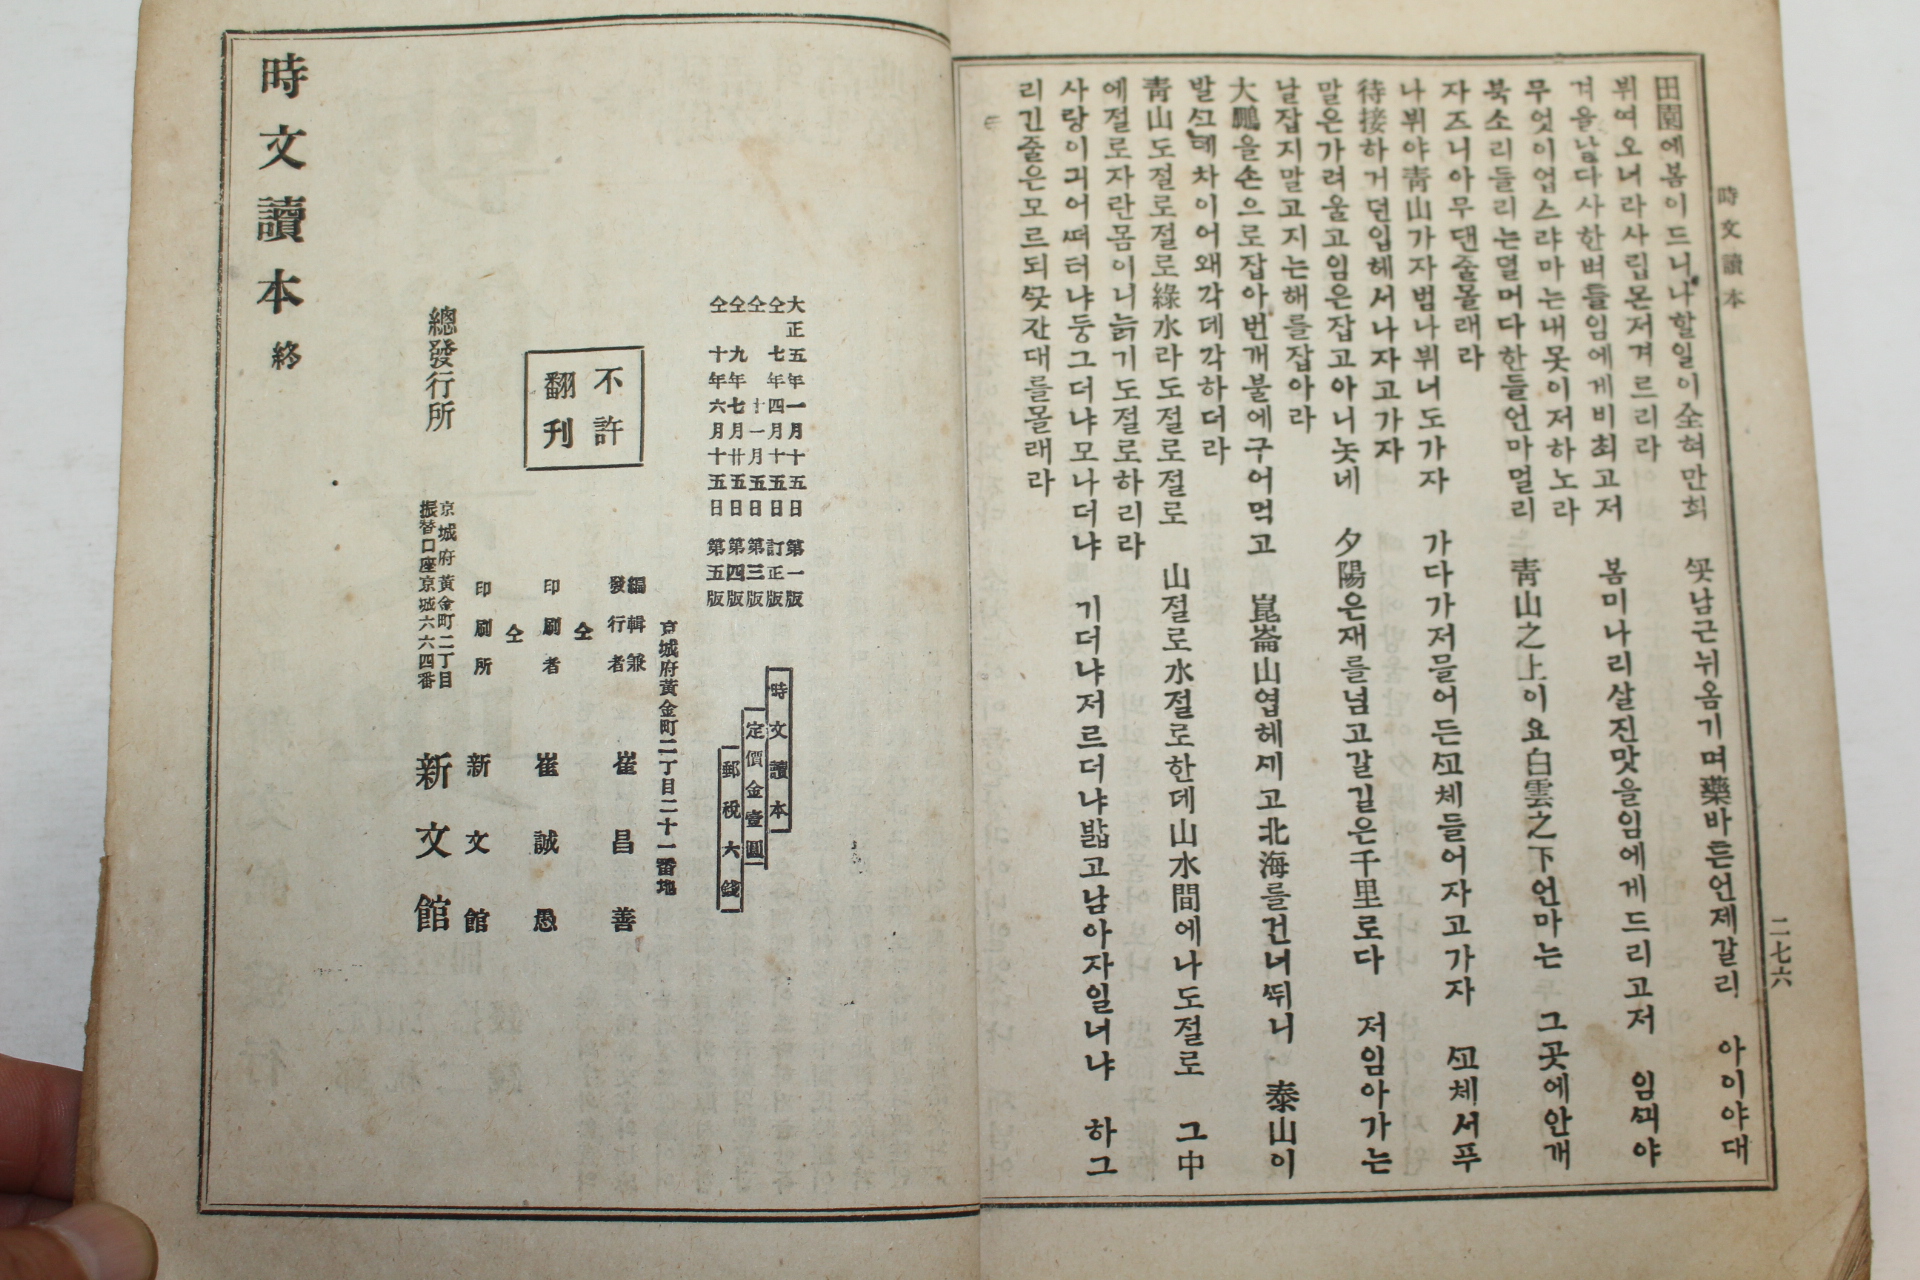 時文讀本
二七六
田園에봄이드니나할일이全혀만희 ᄭᅩᆺ남근뉘옴기며藥바튼언제갈리 아이야대
뷔여오너라사립몬저겨르리라
겨울날다사한벼틀임에게비최고저 봄미나리살진맛을임에게드리고저 임ᄭᅴ야
무엇이업스랴마는내못이저하노라
북소리들리는뎔머다한들언마멀리 靑山之上이요白雲之下언마는 그곳에안개
자즈니아무댄줄몰래라
나뷔야靑山가자범나뷔너도가자 가다가저믈어든ᄭᅩ체들어자고가자 ᄭᅩ체서푸
待接하거던입헤서나자고가자
말은가려울고임은잡고아니놋네 夕陽은재를넘고갈길은千里로다 저임아가는
날잡지말고지는해를잡아라
大鵬을손으로잡아번개불에구어먹고 崑崙山엽헤ᄭᅵ고北海를건너ᄯᅱ니 泰山이
발ᄭᅳᆺ데차이어왜각데각하더라
靑山도절로절로綠水라도절로절로 山절로水절로한데山水間에나도절로 그中
에절로자란몸이니늙기도절로하리라
사랑이긔어ᄯᅥ터냐둥그더냐모나더냐 기더냐저르더냐밟고남아자일너냐 하그
리긴줄은모르되ᄭᅳᆺ간대를몰래라
大正五年一月十五日 第一版
仝 七年四月十五日 訂正版
仝 年十一月五日 第三版
仝 九年七月廿五日 第四版
仝 十年六月十五日 第五版
時文讀本
定價金壹圓
郵稅六錢
不許
翻刊
京城府黃金町二丁目二十一番地
編輯兼
發行者 崔昌善
仝
印刷者 崔誠愚
仝
印刷所 新文館
總發行所
京城府黃金町二丁目
振替口座京城六六四番
新文館
時文讀本 終